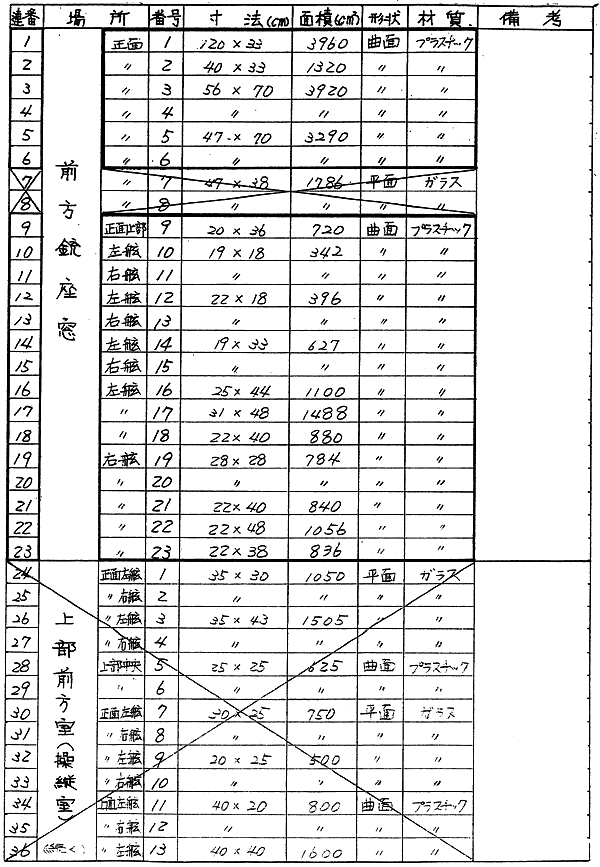 連番 場 所 番号 寸 法(cm) 面積(cm²) 形状 材質. 備 考
前方銃座窓
1 正面 1 120×33 3960 曲面 プラスチック
2 〃 2 40×33 1320 〃 〃
3 〃 3 56×70 3920 〃 〃
4 〃 4 〃 〃 〃 〃
5 〃 5 47×70 3290 〃 〃
6 〃 6 〃 〃 〃 〃
7 〃 7 47×38 1786 平面 ガラス
8 〃 8 〃 〃 〃 〃
9 正面上部 9 20×36 720 曲面 プラスチック
10 左舷 10 19×18 342 〃 〃
11 右舷 11 〃 〃 〃 〃
12 左舷 12 22×18 396 〃 〃
13 右舷 13 〃 〃 〃 〃
14 左舷 14 19×33 627 〃 〃
15 右舷 15 〃 〃 〃 〃
16 左舷 16 25×44 1100 〃 〃
17 〃 17 31×48 1488 〃 〃
18 〃 18 22×40 880 〃 〃
19 右舷 19 28×28 784 〃 〃
20 〃 20 〃 〃 〃 〃
21 〃 21 22×40 840 〃 〃
22 〃 22 22×48 1056 〃 〃
23 〃 23 22×38 836 〃 〃
上部前方室(操縦室)
24 正面左舷 1 35×30 1050 平面 ガラス
25 〃右舷 2 〃 〃 〃 〃
26 〃左舷 3 35×43 1505 〃 〃
27 〃右舷 4 〃 〃 〃 〃
28 上部中央 5 25×25 625 曲面 プラスチック
29 〃 6 〃 〃 〃 〃
30 正面左舷 7 30×25 750 平面 ガラス
31 〃右舷 8 〃 〃 〃 〃
32 〃左舷 9 20×25 500 〃 〃
33 〃右舷 10 〃 〃 〃 〃
34 正面左舷 11 40×20 800 曲面 プラスチック
35 〃右舷 12 〃 〃 〃 〃
36 (続く) 〃左舷 13 40×40 1600 〃 〃